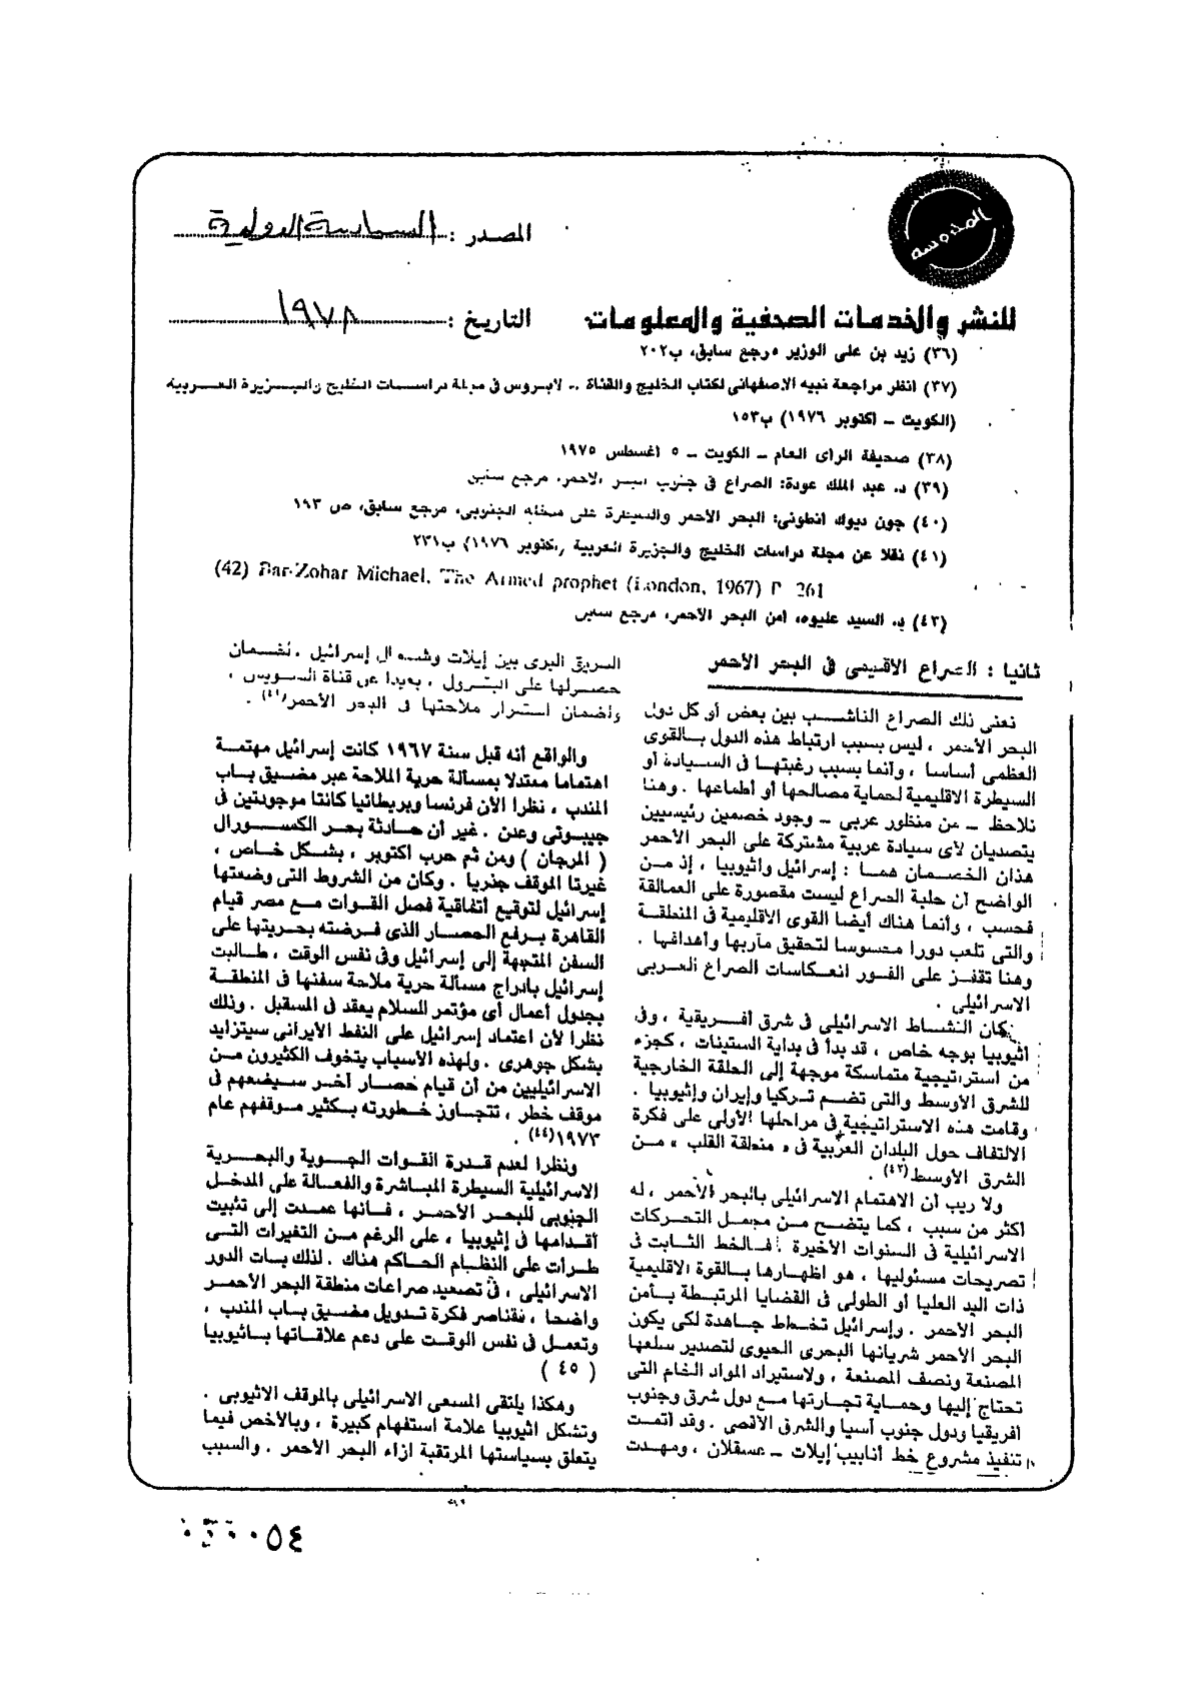 المصدر : السياسة الدولية
المدروسة
التاريخ : ١٩٧٨
للنشر والخدمات الصحفية والمعلومات
(٣٦) زيد بن على الوزير مرجع سابق، ب٢٠٢
(٣٧) انظر مراجعة نبيه الاصفهانى لكتاب الخليج والقناة .. لابروس فى مجلة دراسات الخليج والجزيرة العربية
(الكويت ـ اكتوبر ١٩٧٦) ب١٥٣
(٣٨) صحيفة الراى العام ـ الكويت ـ ٥ اغسطس ١٩٧٥
(٣٩) د. عبد الملك عودة: الصراع فى جنوب البحر الاحمر، مرجع سابق
(٤٠) جون ديوك انطونى: البحر الأحمر والسيطرة على مدخله الجنوبى، مرجع سابق، ص ١٩٣
(٤١) نقلا عن مجلة دراسات الخليج والجزيرة العربية (اكتوبر ١٩٧٦) ب٢٣١
(42) Bar-Zohar Michael, The Armed prophet (London, 1967) P 261
(٤٣) د. السيد عليوه، امن البحر الأحمر، مرجع سابق
ثانيا : الصراع الاقليمى فى البحر الأحمر
نعنى ذلك الصراع الناشب بين بعض أو كل دول
البحر الأحمر ، ليس بسبب ارتباط هذه الدول بالقوى
العظمى أساسا ، وانما بسبب رغبتها فى السيادة أو
السيطرة الاقليمية لحماية مصالحها أو أطماعها . وهنا
نلاحظ ـ من منظور عربى ـ وجود خصمين رئيسيين
يتصديان لأى سيادة عربية مشتركة على البحر الأحمر
هذان الخصمان هما : إسرائيل واثيوبيا ، إذ من
الواضح أن حلبة الصراع ليست مقصورة على العمالقة
فحسب ، وانما هناك أيضا القوى الاقليمية فى المنطقة
والتى تلعب دورا محسوسا لتحقيق مآربها وأهدافها .
وهنا تقفز على الفور انعكاسات الصراع العربى
الاسرائيلى .
كان النشاط الاسرائيلى فى شرق أفريقية ، وفى
اثيوبيا بوجه خاص ، قد بدأ فى بداية الستينات ، كجزء
من استراتيجية متماسكة موجهة إلى الحلقة الخارجية
للشرق الأوسط والتى تضم تركيا وإيران وإثيوبيا .
وقامت هذه الاستراتيجية فى مراحلها الأولى على فكرة
الالتفاف حول البلدان العربية فى « منطقة القلب » من
الشرق الأوسط(٤٣).
ولا ريب أن الاهتمام الاسرائيلى بالبحر الأحمر ، له
أكثر من سبب ، كما يتضح من مجمل التحركات
الاسرائيلية فى السنوات الأخيرة . فالخط الثابت فى
تصريحات مسئوليها ، هو اظهارها بالقوة الاقليمية
ذات اليد العليا أو الطولى فى القضايا المرتبطة بأمن
البحر الأحمر . وإسرائيل تخطط جاهدة لكى يكون
البحر الأحمر شريانها البحرى الحيوى لتصدير سلعها
المصنعة ونصف المصنعة ، ولاستيراد المواد الخام التى
تحتاج إليها وحماية تجارتها مع دول شرق وجنوب
افريقيا ودول جنوب آسيا والشرق الأقصى . وقد أتمت
تنفيذ مشروع خط أنابيب إيلات ـ عسقلان ، ومهدت
الطريق البرى بين إيلات وشمال إسرائيل ، لضمان
حصولها على البترول ، بعيدا عن قناة السويس ،
ولضمان استمرار ملاحتها فى البحر الأحمر(٤١) .
والواقع أنه قبل سنة ١٩٦٧ كانت إسرائيل مهتمة
اهتماما معتدلا بمسألة حرية الملاحة عبر مضيق باب
المندب ، نظرا لأن فرنسا وبريطانيا كانتا موجودتين فى
جيبوتى وعدن . غير أن حادثة بحر الكسورال
( المرجان ) ومن ثم حرب اكتوبر ، بشكل خاص ،
غيرتا الموقف جذريا . وكان من الشروط التى وضعتها
إسرائيل لتوقيع اتفاقية فصل القوات مع مصر قيام
القاهرة برفع الحصار الذى فرضته بحريتها على
السفن المتجهة إلى إسرائيل وفى نفس الوقت ، طالبت
إسرائيل بادراج مسألة حرية ملاحة سفنها فى المنطقة
بجدول أعمال أى مؤتمر للسلام يعقد فى المستقبل . وذلك
نظرا لأن اعتماد إسرائيل على النفط الأيرانى سيتزايد
بشكل جوهرى . ولهذه الأسباب يتخوف الكثيرون من
الاسرائيليين من أن قيام حصار آخر سيضعهم فى
موقف خطر ، تتجاوز خطورته بكثير موقفهم عام
١٩٧٣(٤٤) .
ونظرا لعدم قدرة القوات الجوية والبحرية
الاسرائيلية السيطرة المباشرة والفعالة على المدخل
الجنوبى للبحر الأحمر ، فانها عمدت إلى تثبيت
أقدامها فى إثيوبيا ، على الرغم من التغيرات التى
طرأت على النظام الحاكم هناك . لذلك بات الدور
الاسرائيلى ، فى تصعيد صراعات منطقة البحر الأحمر
واضحا ، فتناصر فكرة تدويل مضيق باب المندب ،
وتعمل فى نفس الوقت على دعم علاقاتها باثيوبيا
( ٤٥ )
وهكذا يلتقى المسعى الاسرائيلى بالموقف الاثيوبى .
وتشكل اثيوبيا علامة استفهام كبيرة ، وبالأخص فيما
يتعلق بسياستها المرتقبة ازاء البحر الأحمر . والسبب
٠٠٥٤